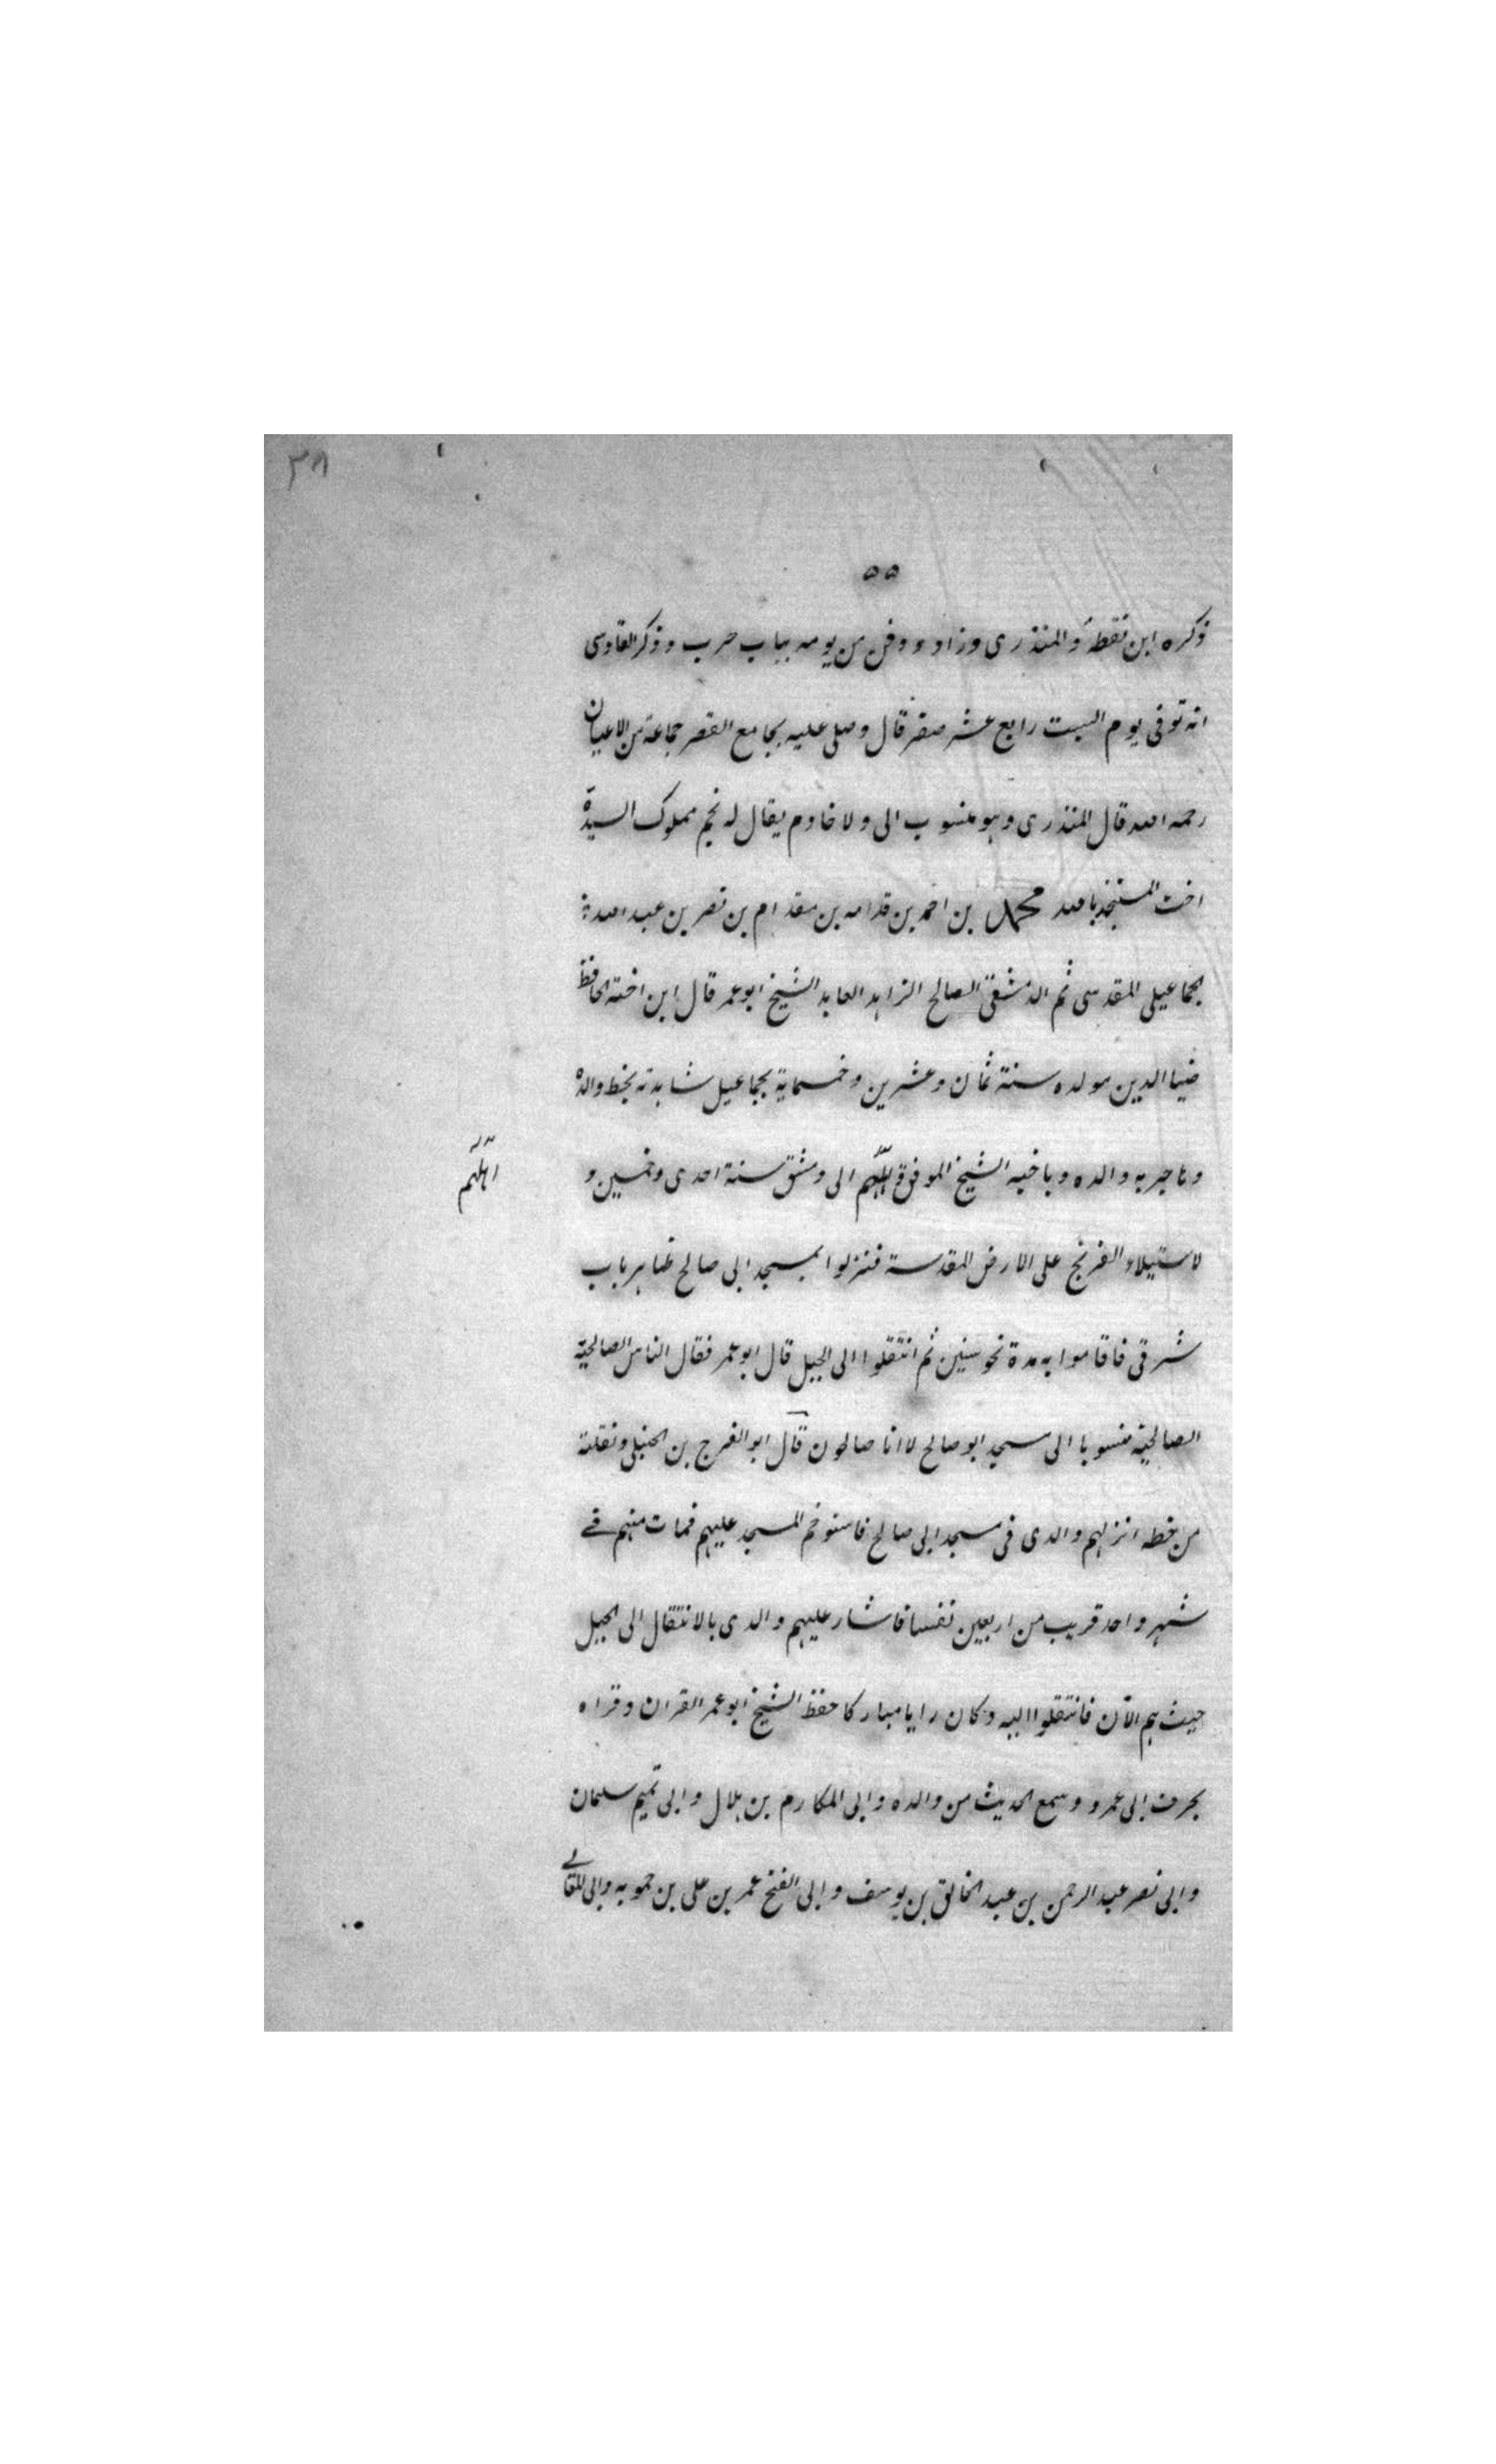 ٣٨
٥٥
ذكره ابن نقطة والمنذرى وزاد ودفن من يومه بباب حرب وذكر القادسى
انه توفى يوم السبت رابع عشر صفر قال وصلى عليه بجامع القصر جماعة من الاعيان
رحمه الله قال المنذرى وهو منسوب الى ولا خادم يقال له نجم مملوك السيدة
اخت المستنجد بالله محمد بن احمد بن قدامه بن مقدام بن نصر بن عبد الله
الجماعيلى المقدسى ثم الدمشقى الصالح الزاهد العابد الشيخ ابو عمر قال ابن اخته الحافظ
ضيا الدين مولده سنة ثمان وعشرين وخمسماية بجماعيل شاهدته بخط والده
وهاجر به والده وباخيه الشيخ الموفق اللهم الى دمشق سنة احدى وخمسين و
اهلهم
لاستيلاء الفرنج على الارض المقدسة فنزلوا بمسجد ابى صالح ظاهر باب
شرقى فاقاموا به مدة نحو سنين ثم انتقلوا الى الجبل قال ابو عمر فقال الناس الصالحية
الصالحية منسوبا الى مسجد ابو صالح لا انا صالحون قال ابو الفرج بن الحنبلى ونقلته
من خطه انزلهم والدى فى مسجد ابى صالح فاستوخم المسجد عليهم فمات منهم فى
شهر واحد قريب من اربعين نفسا فاشار عليهم والدى بالانتقال الى الجبل
حيث هم الآن فانتقلوا اليه وكان رايا مباركا حفظ الشيخ ابو عمر القران وقراه
بحرف ابى عمرو وسمع الحديث من والده وابى المكارم بن هلال وابى تميم سلمان
وابى نصر عبد الرحمن بن عبد الخالق بن يوسف وابى الفتح عمر بن على بن حمويه وابى المعالى